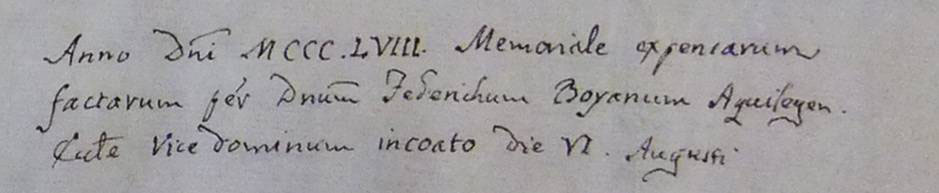 Anno Dni MCCC.LVIII. Memoriale expensarum
factarum per Dnum Federichum Boyanum Aquilegen.
Vice dominum incoato die VI. Augusti